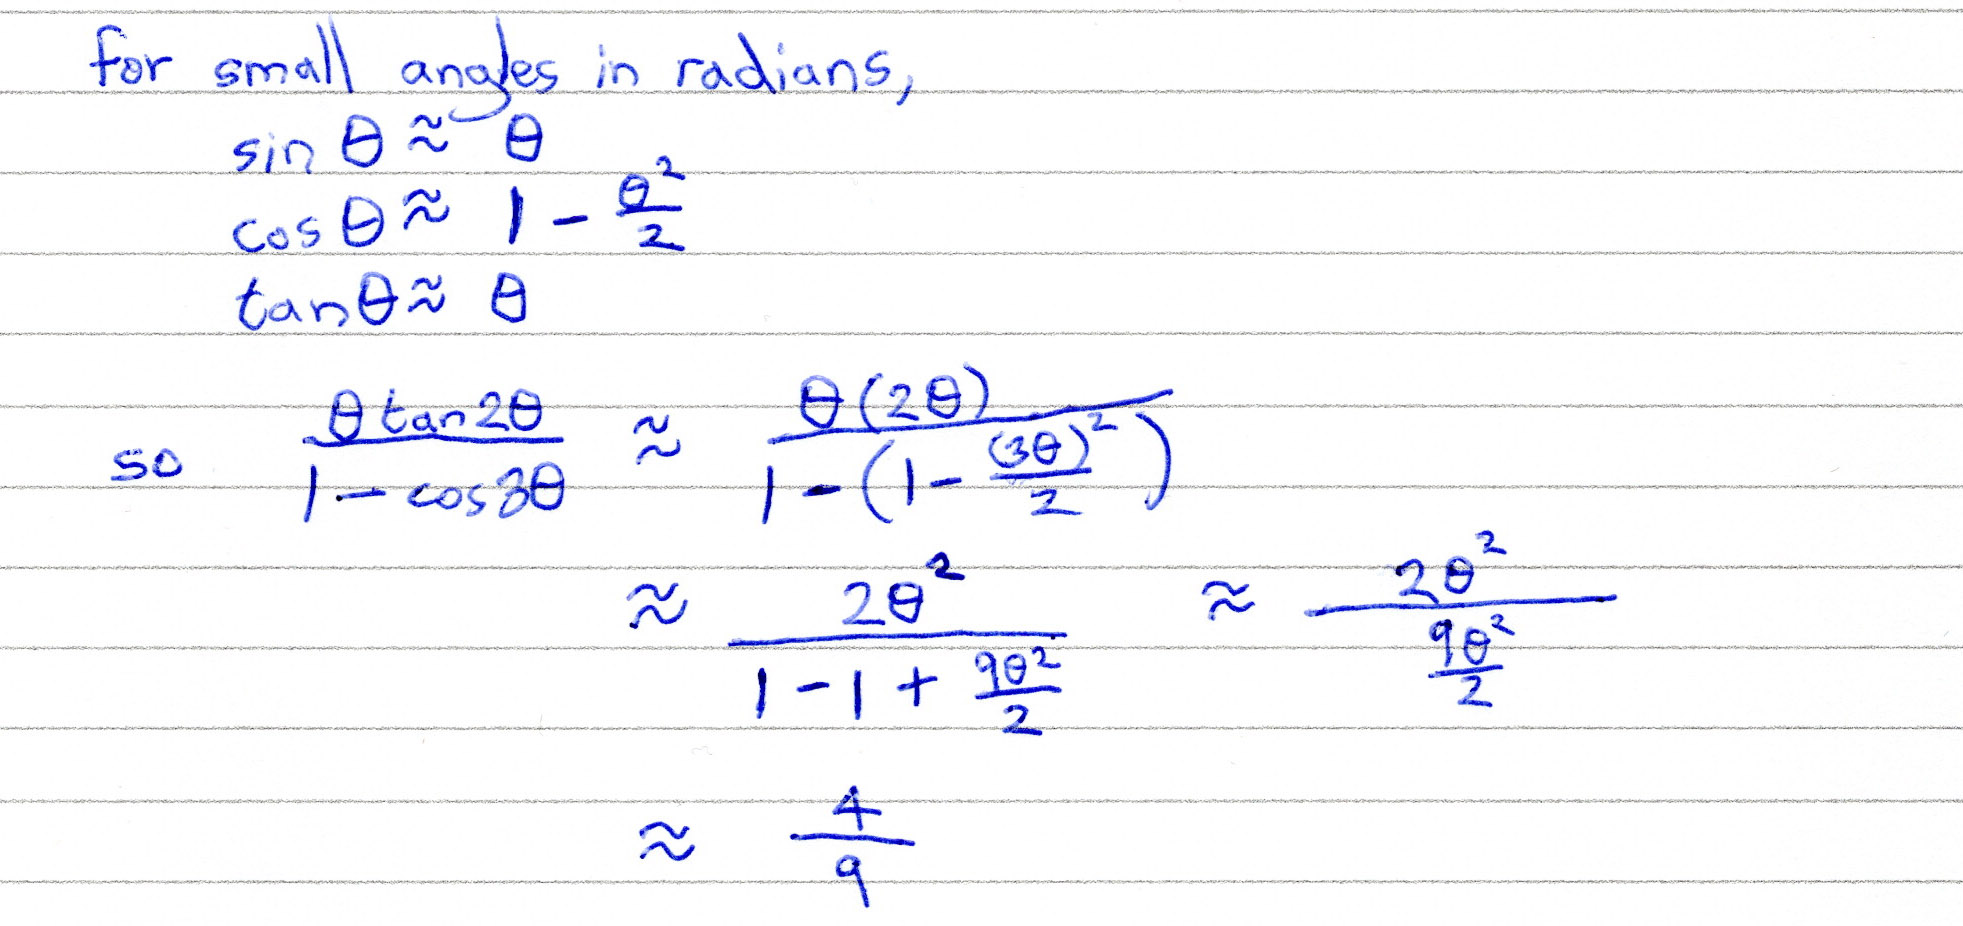 for small angles in radians,
sin θ ≈ θ
cos θ ≈ 1 - θ²/2
tan θ ≈ θ
so θ tan 2θ / (1 - cos 3θ) ≈ θ(2θ) / (1 - (1 - (3θ)²/2))
≈ 2θ² / (1 - 1 + 9θ²/2) ≈ 2θ² / (9θ²/2)
≈ 4/9